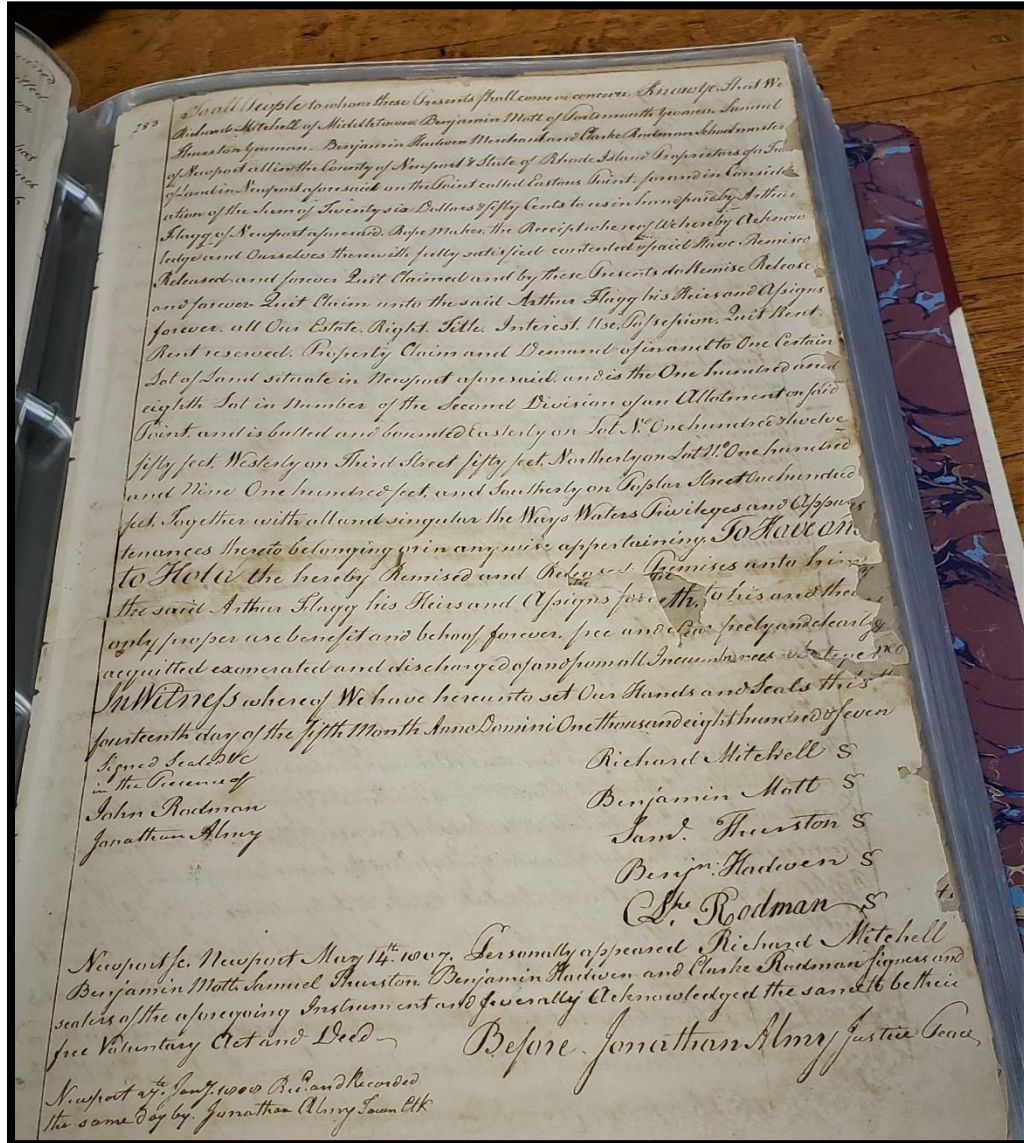 283
To all People to whom these Presents shall come or concern. Know Ye That We
Richard Mitchell of Middletown, Benjamin Mott of Portsmouth Yeomen, Samuel
Thurston Yeoman, Benjamin Hadwen Merchant and Clarke Rodman Schoolmaster
of Newport all in the County of Newport & State of Rhode Island Proprietors of a Tra
of Land in Newport aforesaid on the Point called Eastons Point, for and in Consider
ation of the Sum of Twenty six Dollars & fifty Cents to us in hand paid by Arthur
Flagg of Newport aforesaid. Rope Maker, the Receipt whereof We hereby Acknow
ledge and Ourselves therewith fully satisfied contented & paid Have Remised
Released and forever Quit Claimed and by these Presents do Remise Release
and forever Quit Claim unto the said Arthur Flagg his Heirs and Assigns
forever. all Our Estate, Right, Title, Interest, Use, Possession, Quit Rent,
Rent reserved, Property Claim and Demand of in and to One Certain
Lot of Land situate in Newport aforesaid. and is the One hundred and
eighth Lot in Number of the Second Division of an Allotment on said
Point, and is butted and bounded Easterly on Lot No. One hundred & twelve
fifty feet, Westerly on Third Street fifty feet, Northerly on Lot No. One hundred
and Nine One hundred feet, and Southerly on Poplar Street One hundred
feet. Together with all and singular the Ways Waters Privileges and Appur
tenances thereto belonging or in any wise appertaining. To Have and
to Hold the hereby Remised and Released Premises unto him
the said Arthur Flagg his Heirs and Assigns to his and their
only proper use benefit and behoof forever. free and clear freely and clearly
acquitted exonerated and discharged of and from all Incumbrances
In Witness whereof We have hereunto set Our Hands and Seals this
fourteenth day of the fifth Month Anno Domini One thousand eight hundred & seven
Signed Seal'd &c
in the Presence of
John Rodman
Jonathan Almy
Richard Mitchell S
Benjamin Mott S
Saml. Thurston S
Benjn. Hadwen S
Clke. Rodman S
Newport Sc. Newport May 14th. 1807. Personally appeared Richard Mitchell
Benjamin Mott Samuel Thurston Benjamin Hadwen and Clarke Rodman signers and
sealers of the aforegoing Instrument and severally Acknowledged the same to be their
free Voluntary Act and Deed
Before Jonathan Almy Justice Peace
Newport 27th. Jany. 1808 Recd. and Recorded
the same day by. Jonathan Almy Town Clk